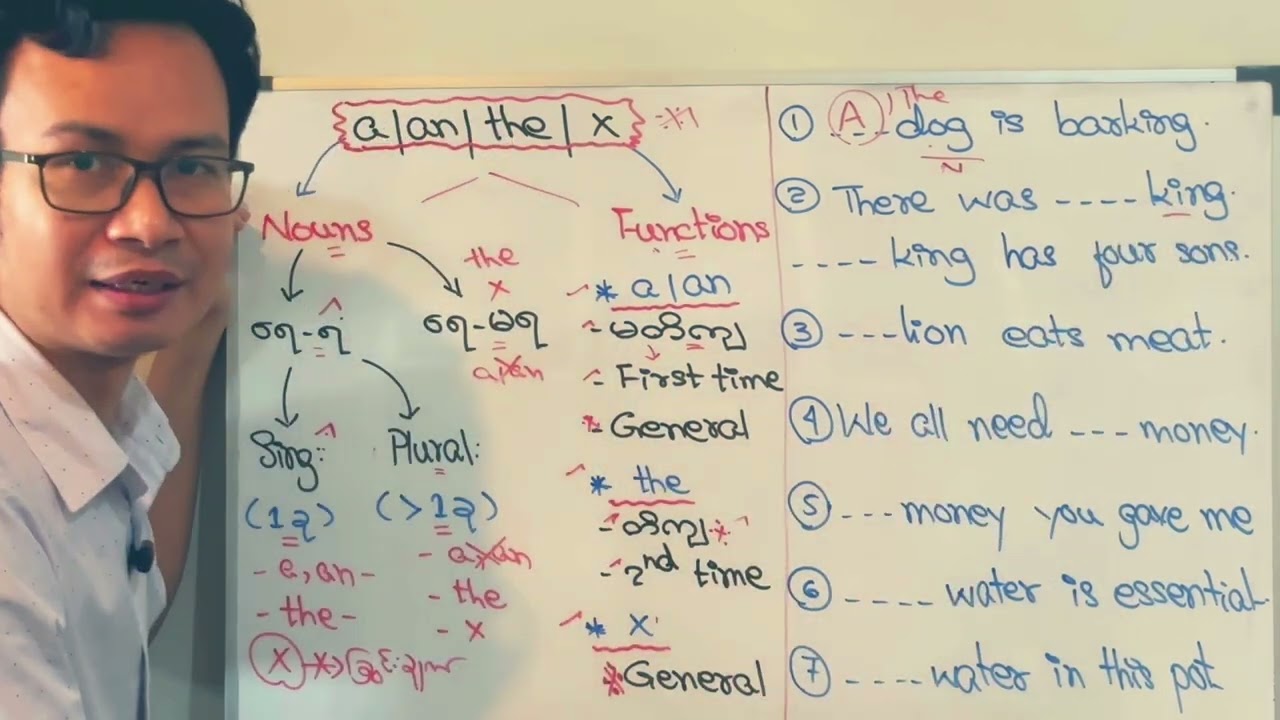 a | an | the | x
Nouns
the
x
ရေ-ရ
ရေ-မရ
a, an
Sing:
Plural:
(1ခု)
(>1ခု)
- a, an -
- the -
x
- a, an
- the
- x
Functions
* a | an
- မတိကျ
- First time
* General
* the
- တိကျ *
- 2nd time
* x
* General
① A, The
dog is barking.
N
② There was ---- king.
---- king has four sons.
③ ---lion eats meat.
④ We all need --- money.
⑤ --- money you gave me
⑥ ---- water is essential.
⑦ ---- water in this pot